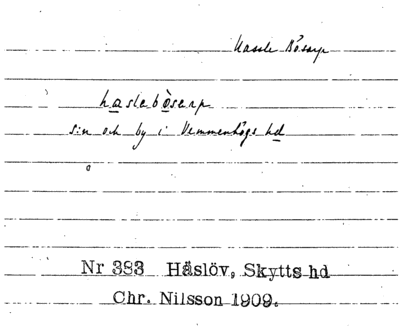 Hassle Bösarp
hasleböserp
s:n och by i Vemmenhögs hd
Nr 383 Häslöv, Skytts hd
Chr. Nilsson 1909.